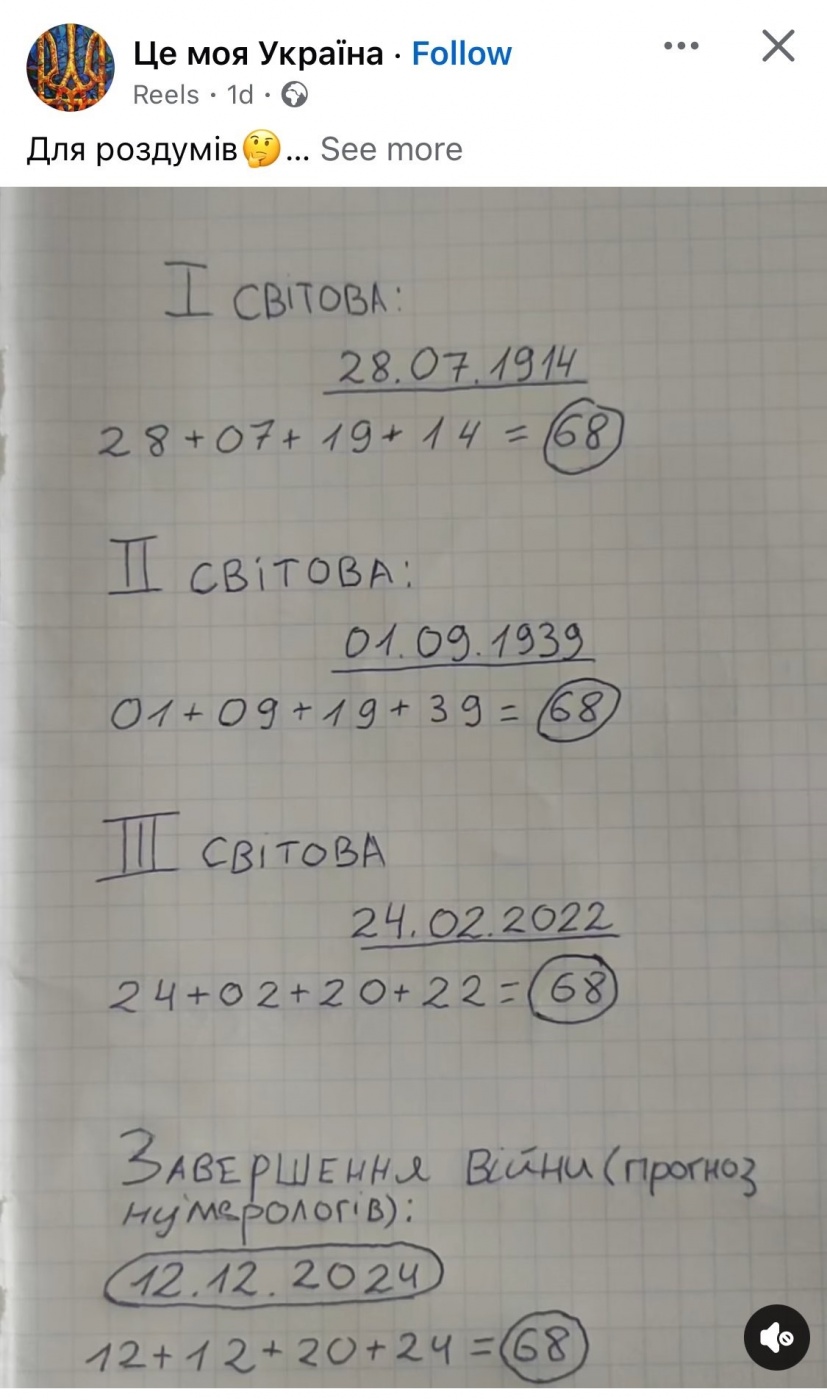 Це моя Україна · Follow
Reels · 1d ·
Для роздумів🤔... See more
I СВІТОВА:
28.07.1914
28+07+19+14 = 68
II СВІТОВА:
01.09.1939
01+09+19+39 = 68
III СВІТОВА
24.02.2022
24+02+20+22 = 68
ЗАВЕРШЕННЯ ВІЙНИ (прогноз
нумерологів):
12.12.2024
12+12+20+24 = 68